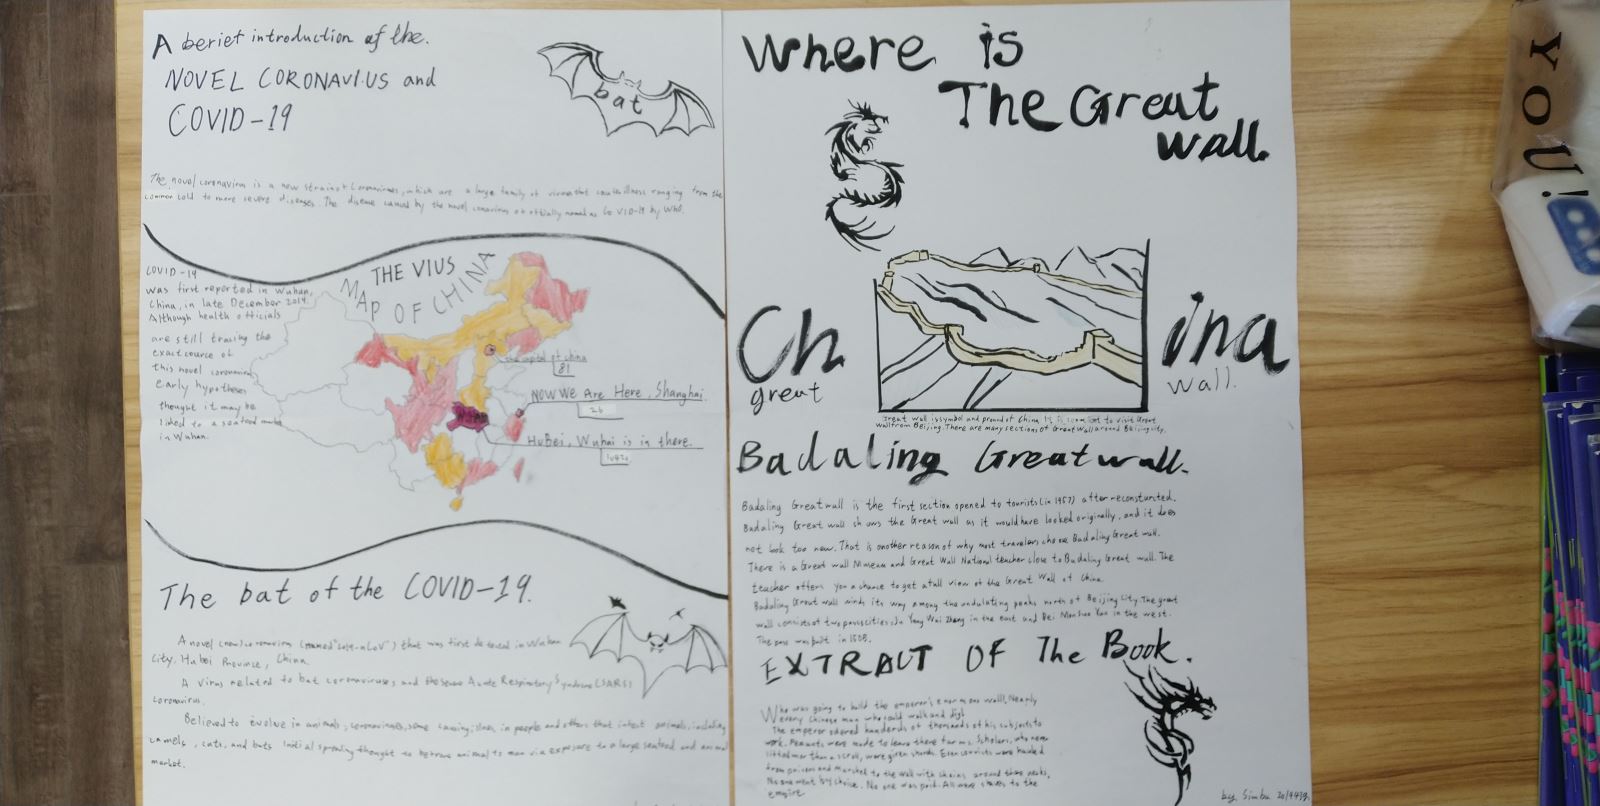 A beriet introduction of the.
NOVEL CORONAVIUS and
COVID-19
bat
The novel coronavirus is a new strain of coronaviruses, which are a large family of viruses that cause illness ranging from the
common cold to more severe diseases. The disease caused by the novel coronavirus officially named as COVID-19 by WHO.
COVID-19
was first reported in Wuhan,
China, in late December 2019.
Although health officials
are still tracing the
exact source of
this novel coronavirus
early hypotheses
thought it may be
linked to a seafood market
in Wuhan.
THE VIUS
MAP OF CHINA
the capital of china
81
NOW We Are Here, Shanghai.
26
HuBei, Wuhai is in there.
The bat of the COVID-19.
A novel (new) coronavirus (named "2019-nCoV") that was first detected in Wuhan
City, Hubei Province, China
A virus related to bat coronaviruses and the severe Acute Respiratory Syndrome (SARS)
coronavirus.
Believed to evolve in animals, coronaviruses, some causing illness in people and others that infect animals, including
camels, cats, and bats initial spreading thought to be from animal to man via exposure to a large seafood and animal
market.
Where is
The Great
wall.
China
great wall.
Great wall is symbol and pround of China. It is to visit Great
wall from Beijing. There are many sections of Great Wall around Beijing city.
Badaling Great wall.
Badaling Great wall is the first section opened to tourists (in 1957) after reconsturcted.
Badaling Great wall shows the Great wall as it would have looked originally, and it does
not look too new. That is another reason of why most travelers choose Badaling Great wall.
There is a Great wall and Great Wall National teacher close to Badaling Great wall. The
teacher offers you a chance to get a full view of the Great Wall of China.
Badaling Great wall winds its way among the undulating peaks north of Beijing City. The great
wall consists of two passcities, Ju Yong Wai Zheng in the east and Bei Men Suo Yao in the west.
The pass was built in 1505.
EXTRACT OF The Book.
Who was going to build the emperor's enormous wall? Nearly
every Chinese man who could walk and dig!
The emperor odered hunderds of thousands of his subjects to
work. Peasants were made to leave there farms. Scholars, who never
lifted more than a scroll, were given shovels. Even convicts were hauled
from prisons and marched to the wall with chains around their necks,
No one went by choice. No one was paid. All were slaves to the
empire.
by. Simba
YOU!